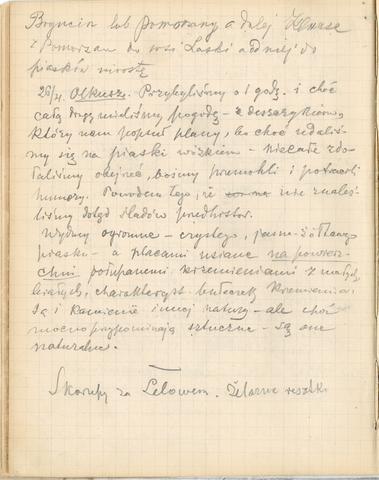 Bogucin lub Pomorzany a dalej
z Pomorzan do wsi Laski a dalej do
piasków
28/4. Olkusz. Przybyliśmy o 1 godz. i choć
całą drogę mieliśmy pogodę – z deszczykiem,
który nam popsuł plany, bo choć udaliś-
my się na piaski wózkiem – niecałe zdo-
łaliśmy obejrzeć, bośmy pramokli i potracili
humory. Powodem tego, że nie znaleź-
liśmy dotąd śladów przedhistor.
Wydmy ogromne – czystego, jasno-żółtawego
piasku – a placami usiane na powierz-
chni połupanemi krzemieniami z małych,
białych, charakteryst. bułeczek krzemienia.
Są i kamienie innej natury – ale choć
mocno przypominają sztuczne – są one
naturalne.
Skorupy za Lelowem. Żelazne resztki